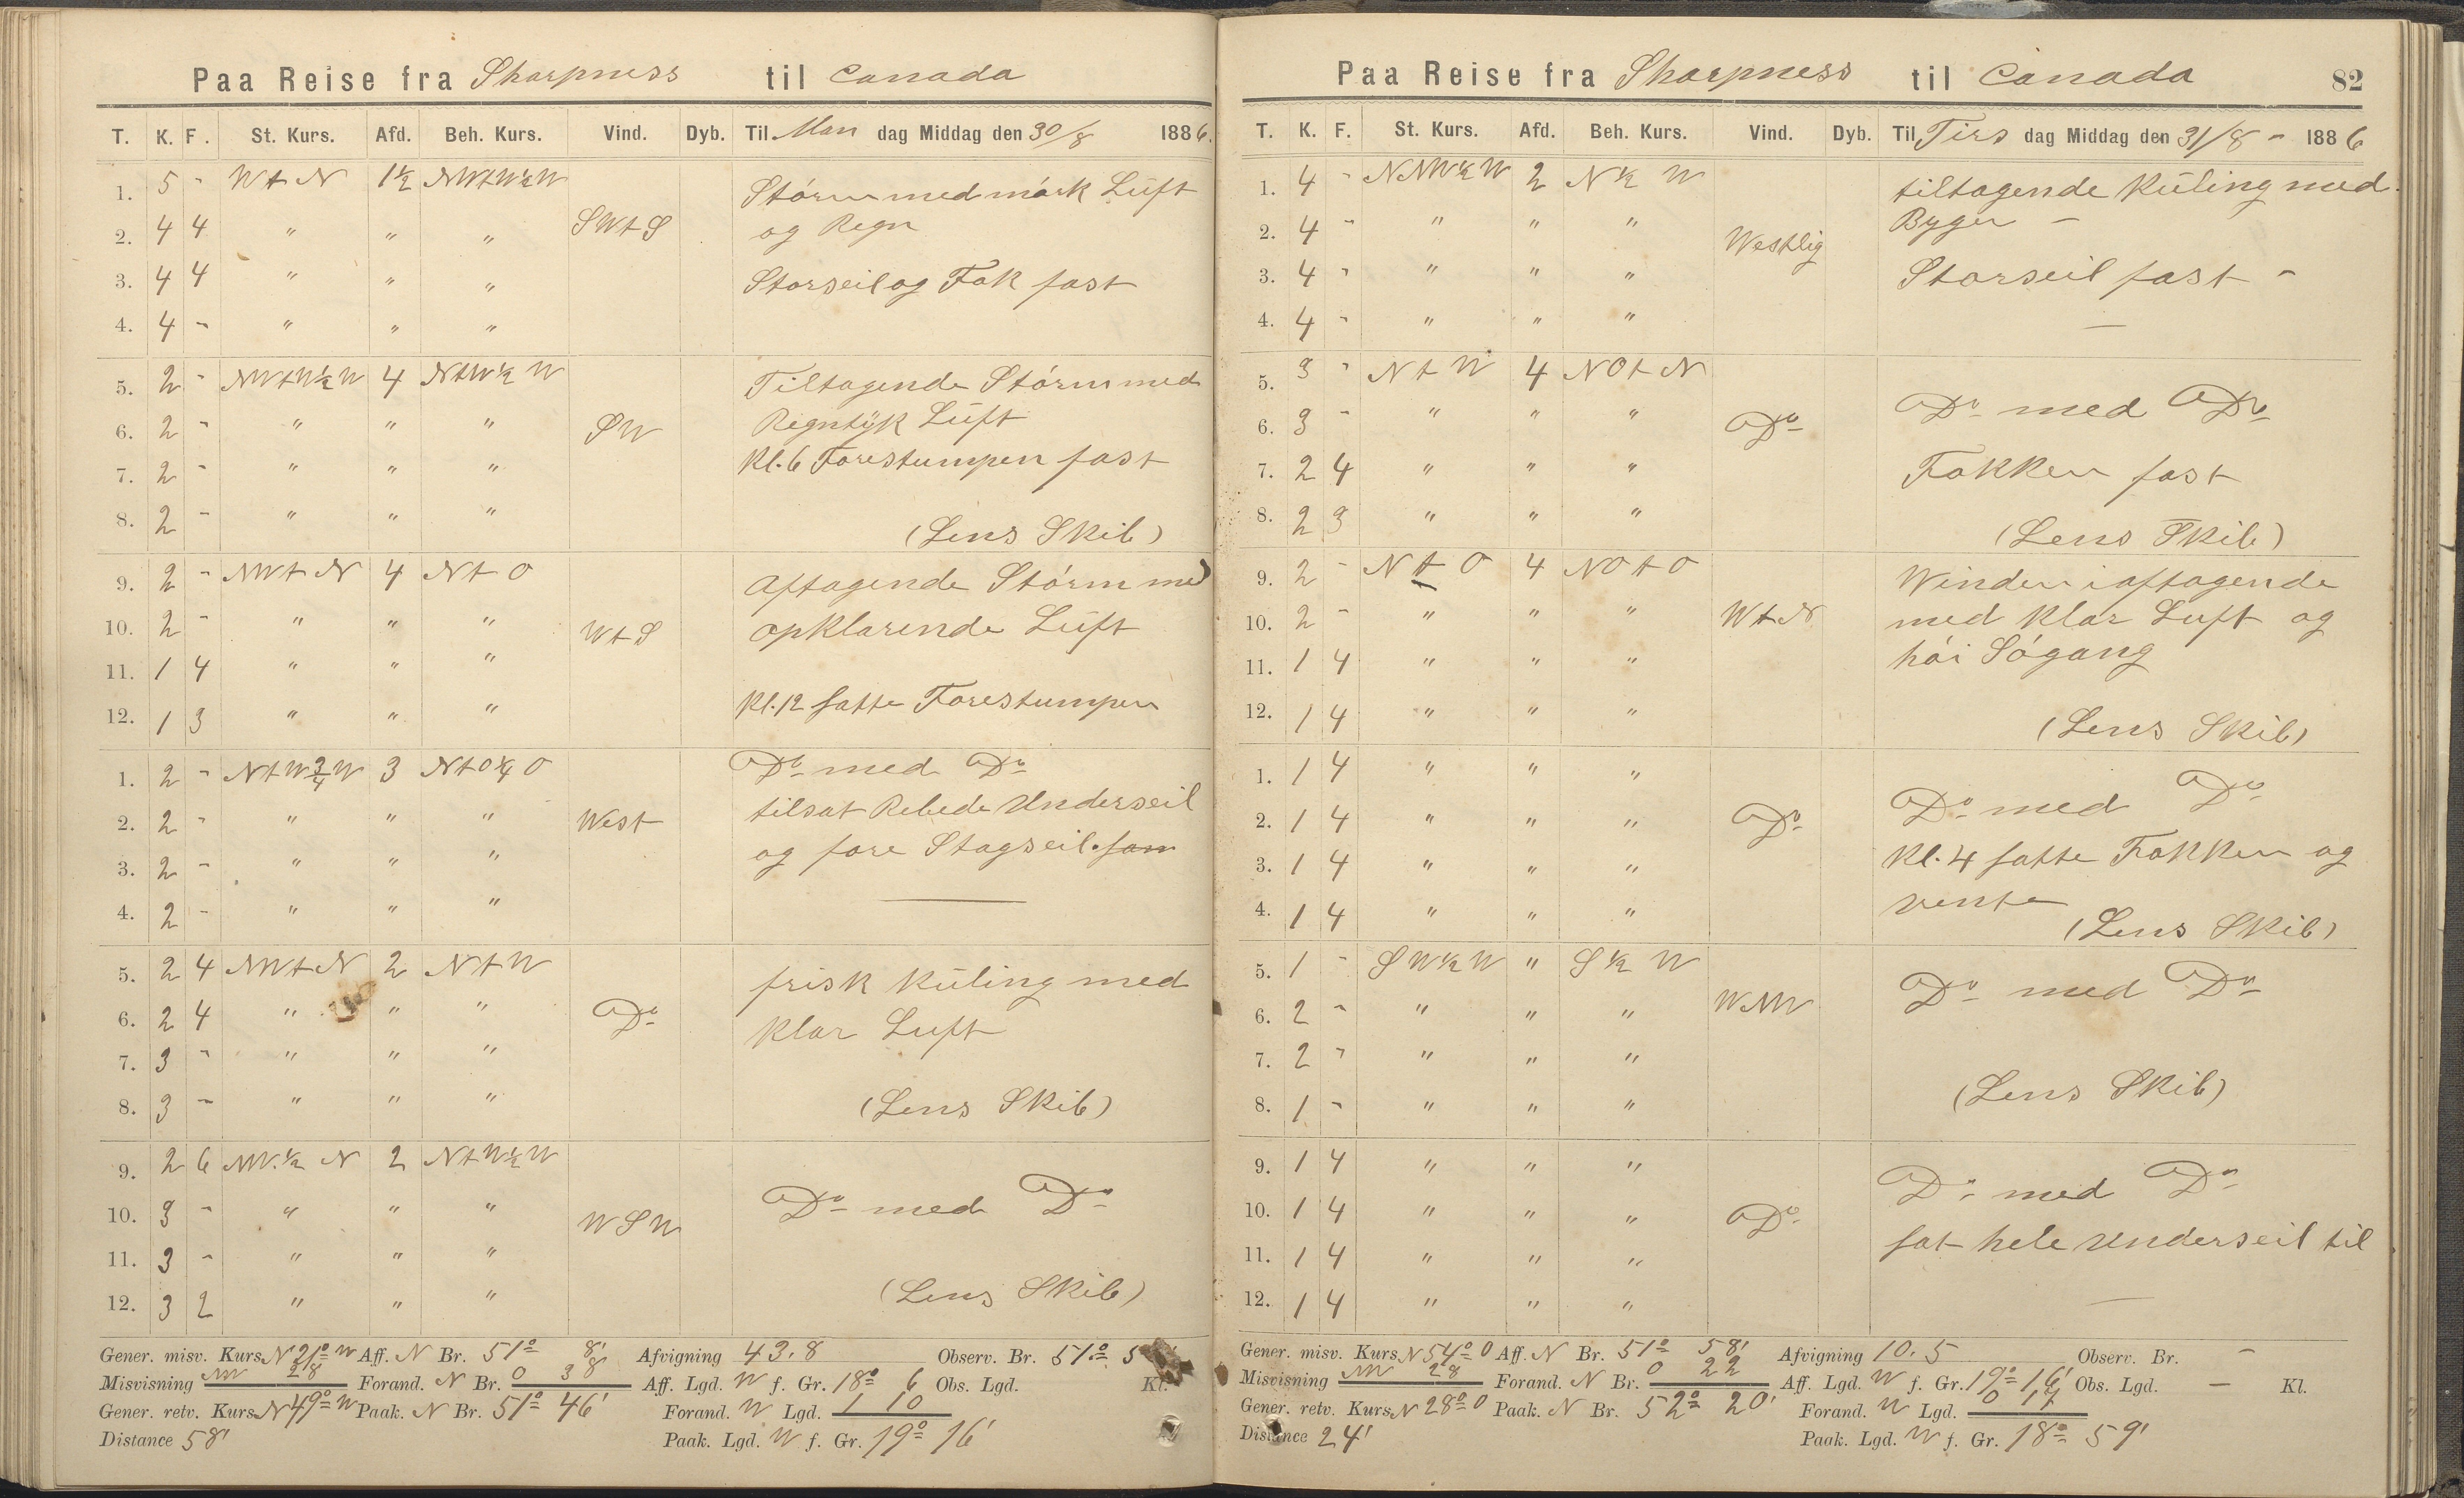 Paa Reise fra Sharpness til Canada
T. K. F. St. Kurs. Afd. Beh. Kurs. Vind. Dyb. Til Man dag Middag den 30/8 1886.
1. 5 - W t N 1½ NWtW½W Stórm med mórk Lüft
2. 4 4 " " " SWtS og Regn
3. 4 4 " " " Storseil og Fok fast
4. 4 - " " "
5. 2 - NWtW½W 4 NtW½ W Tiltagende Stórm med
6. 2 - " " " SW Regntÿk Lüft
7. 2 - " " " Kl. 6 Forestumpen fast
8. 2 - " " " (Lens Skib)
9. 2 - NWt N 4 N t O Aftagende Stórm med
10. 2 - " " " WtS opklarende Lüft
11. 1 4 " " "
12. 1 3 " " " Kl. 12 satte Forestumpen
1. 2 - NtW¾W 3 NtO¼ O Do med Do
2. 2 - " " " West tilsat Rebede Underseil
3. 2 - " " " og fore Stagseil. fam
4. 2 - " " "
5. 2 4 NWt N 2 N t W frisk Küling med
6. 2 4 " " " Do klar Luft
7. 3 - " " "
8. 3 - " " " (Lens Skib)
9. 2 6 NW.½ N 2 NtW½W
10. 3 - " " " WSW Do med Do
11. 3 - " " "
12. 3 2 " " " (Lens Skib)
Gener. misv. Kurs. N 21° W Aff. N Br. 51° 8' Afvigning 43.8 Observ. Br. 51° 5
Misvisning NW 28 Forand. N Br. 0 38 Aff. Lgd. W f. Gr. 18° 6 Obs. Lgd. Kl.
Gener. retv. Kurs. N 49° W Paak. N Br. 51° 46' Forand. W Lgd. 1 10
Distance 58' Paak. Lgd. W f. Gr. 19° 16'
Paa Reise fra Sharpness til Canada 82
T. K. F. St. Kurs. Afd. Beh. Kurs. Vind. Dyb. Til Tirs dag Middag den 31/8 - 1886
1. 4 - NNW½ W 2 N½ W tiltagende Küling med
2. 4 - " " " Westlig Byger -
3. 4 - " " " Storseil fast -
4. 4 - " " "
5. 3 - N t W 4 NOt N
6. 3 - " " " Do Do med Do
7. 2 4 " " " Fokken fast
8. 2 3 " " " (Lens Skib)
9. 2 - N t O 4 NO t O Winden iaftagende
10. 2 - " " " WtN med klar Luft og
11. 1 4 " " " hói Sógang
12. 1 4 " " " (Lens Skib)
1. 1 4 " " "
2. 1 4 " " " Do Do med Do
3. 1 4 " " " Kl. 4 satte Fokken og
4. 1 4 " " " vente (Lens Skib)
5. 1 - SW½ W " S½ W
6. 2 - " " " WNW Do med Do
7. 2 - " " "
8. 1 - " " " (Lens Skib)
9. 1 4 " " "
10. 1 4 " " " Do Do med Do
11. 1 4 " " " sat hele Underseil til
12. 1 4 " " "
Gener. misv. Kurs. N 54° O Aff. N Br. 51° 58' Afvigning 10.5 Observ. Br. -
Misvisning NW 28 Forand. N Br. 0 22 Aff. Lgd. W f. Gr. 19° 16' Obs. Lgd. - Kl.
Gener. retv. Kurs. N 28° O Paak. N Br. 52° 20' Forand. W Lgd. 0 17
Distance 24' Paak. Lgd. W f. Gr. 18° 59'